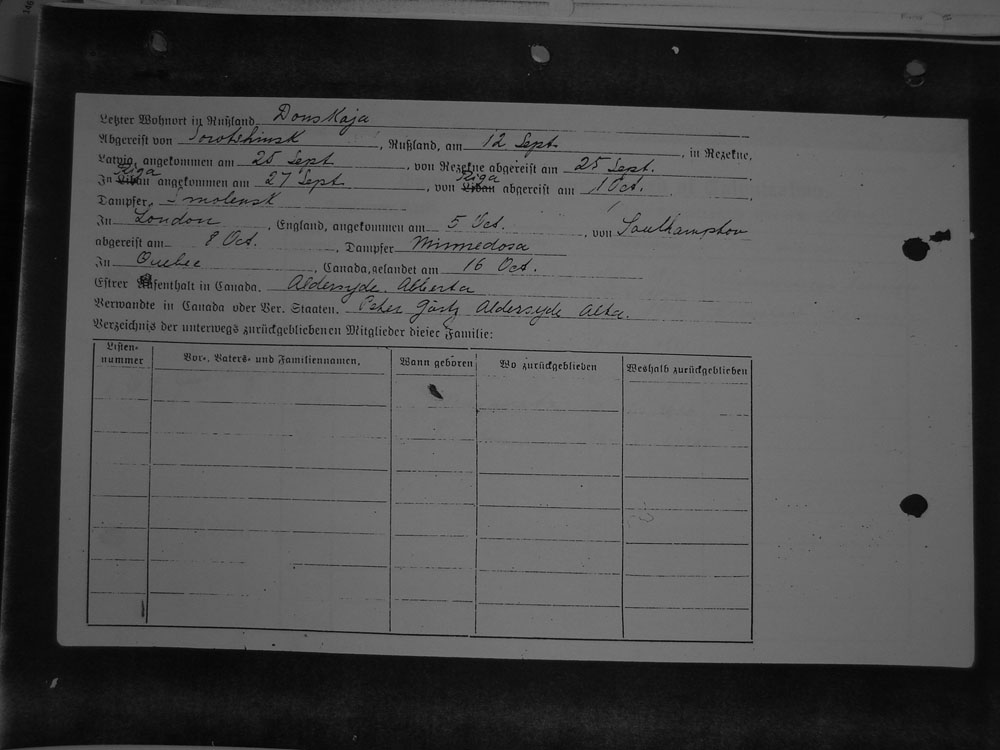 Letzter Wohnort in Rußland Donskaja
Abgereist von Sorotschinsk, Rußland, am 12 Sept., in Rezekne,
Latvia, angekommen am 25 Sept., von Rezekne abgereist am 25 Sept.
Riga Riga
In Libau angekommen am 27 Sept., von Libau abgereist am 1 Oct.
Dampfer Smolensk
In London, England, angekommen am 5 Oct., von Southampton
abgereist am 8 Oct., Dampfer Minnedosa
In Quebec, Canada, gelandet am 16 Oct.
Erster Aufenthalt in Canada. Aldersyde. Alberta
Verwandte in Canada oder Ver. Staaten. Peter Görtz Aldersyde Alta.
Verzeichnis der unterwegs zurückgebliebenen Mitglieder dieser Familie:
Listen-
nummer Vor-, Vaters- und Familiennamen, Wann geboren Wo zurückgeblieben Weshalb zurückgeblieben